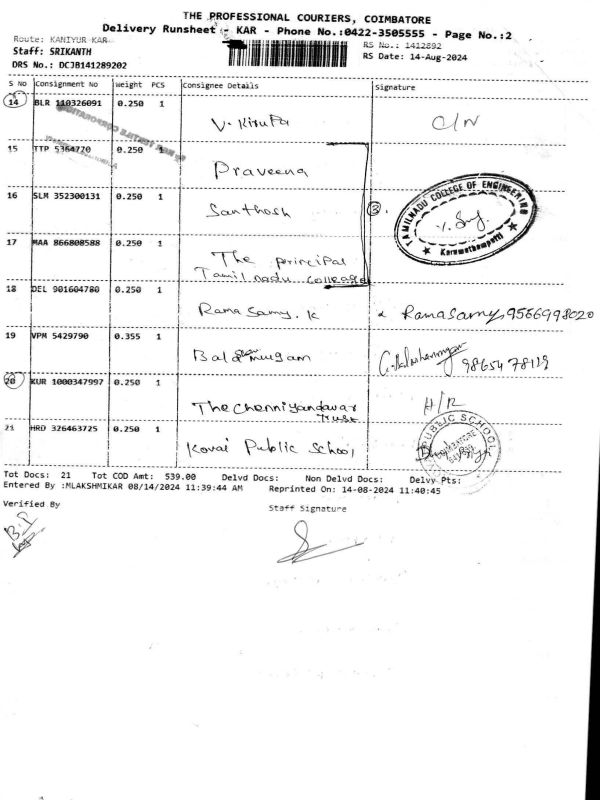 THE PROFESSIONAL COURIERS, COIMBATORE
Delivery Runsheet - KAR - Phone No.:0422-3505555 - Page No.:2
Route: KANIYUR KAR
RS No.: 1412892
Staff: SRIKANTH
RS Date: 14-Aug-2024
DRS No.: DCJB141289202
S No Consignment No Weight PCS Consignee Details Signature
14 BLR 110326091 0.250 1 V. Kirupa C/N
15 TTP 5364720 0.250 1 Praveena
16 SLM 352300131 0.250 1 Santhosh 3.
TAMILNADU COLLEGE OF ENGINEERING
Karumathampatti
17 MAA 866808588 0.250 1 The principal
Tamil nadu colleage
18 DEL 901604780 0.250 1 Rama Samy. K Ramasamy, 9566998020
19 VPM 5429790 0.355 1 Bala murugam 9865478119
20 KUR 1000347997 0.250 1 The chenniyandavar
trust
H/R
21 HRD 326463725 0.250 1 Kovai Public School
PUBLIC SCHOOL
COIMBATORE
Tot Docs: 21 Tot COD Amt: 539.00 Delvd Docs: Non Delvd Docs: Delvy Pts:
Entered By :MLAKSHMIKAR 08/14/2024 11:39:44 AM Reprinted On: 14-08-2024 11:40:45
Verified By
Staff Signature